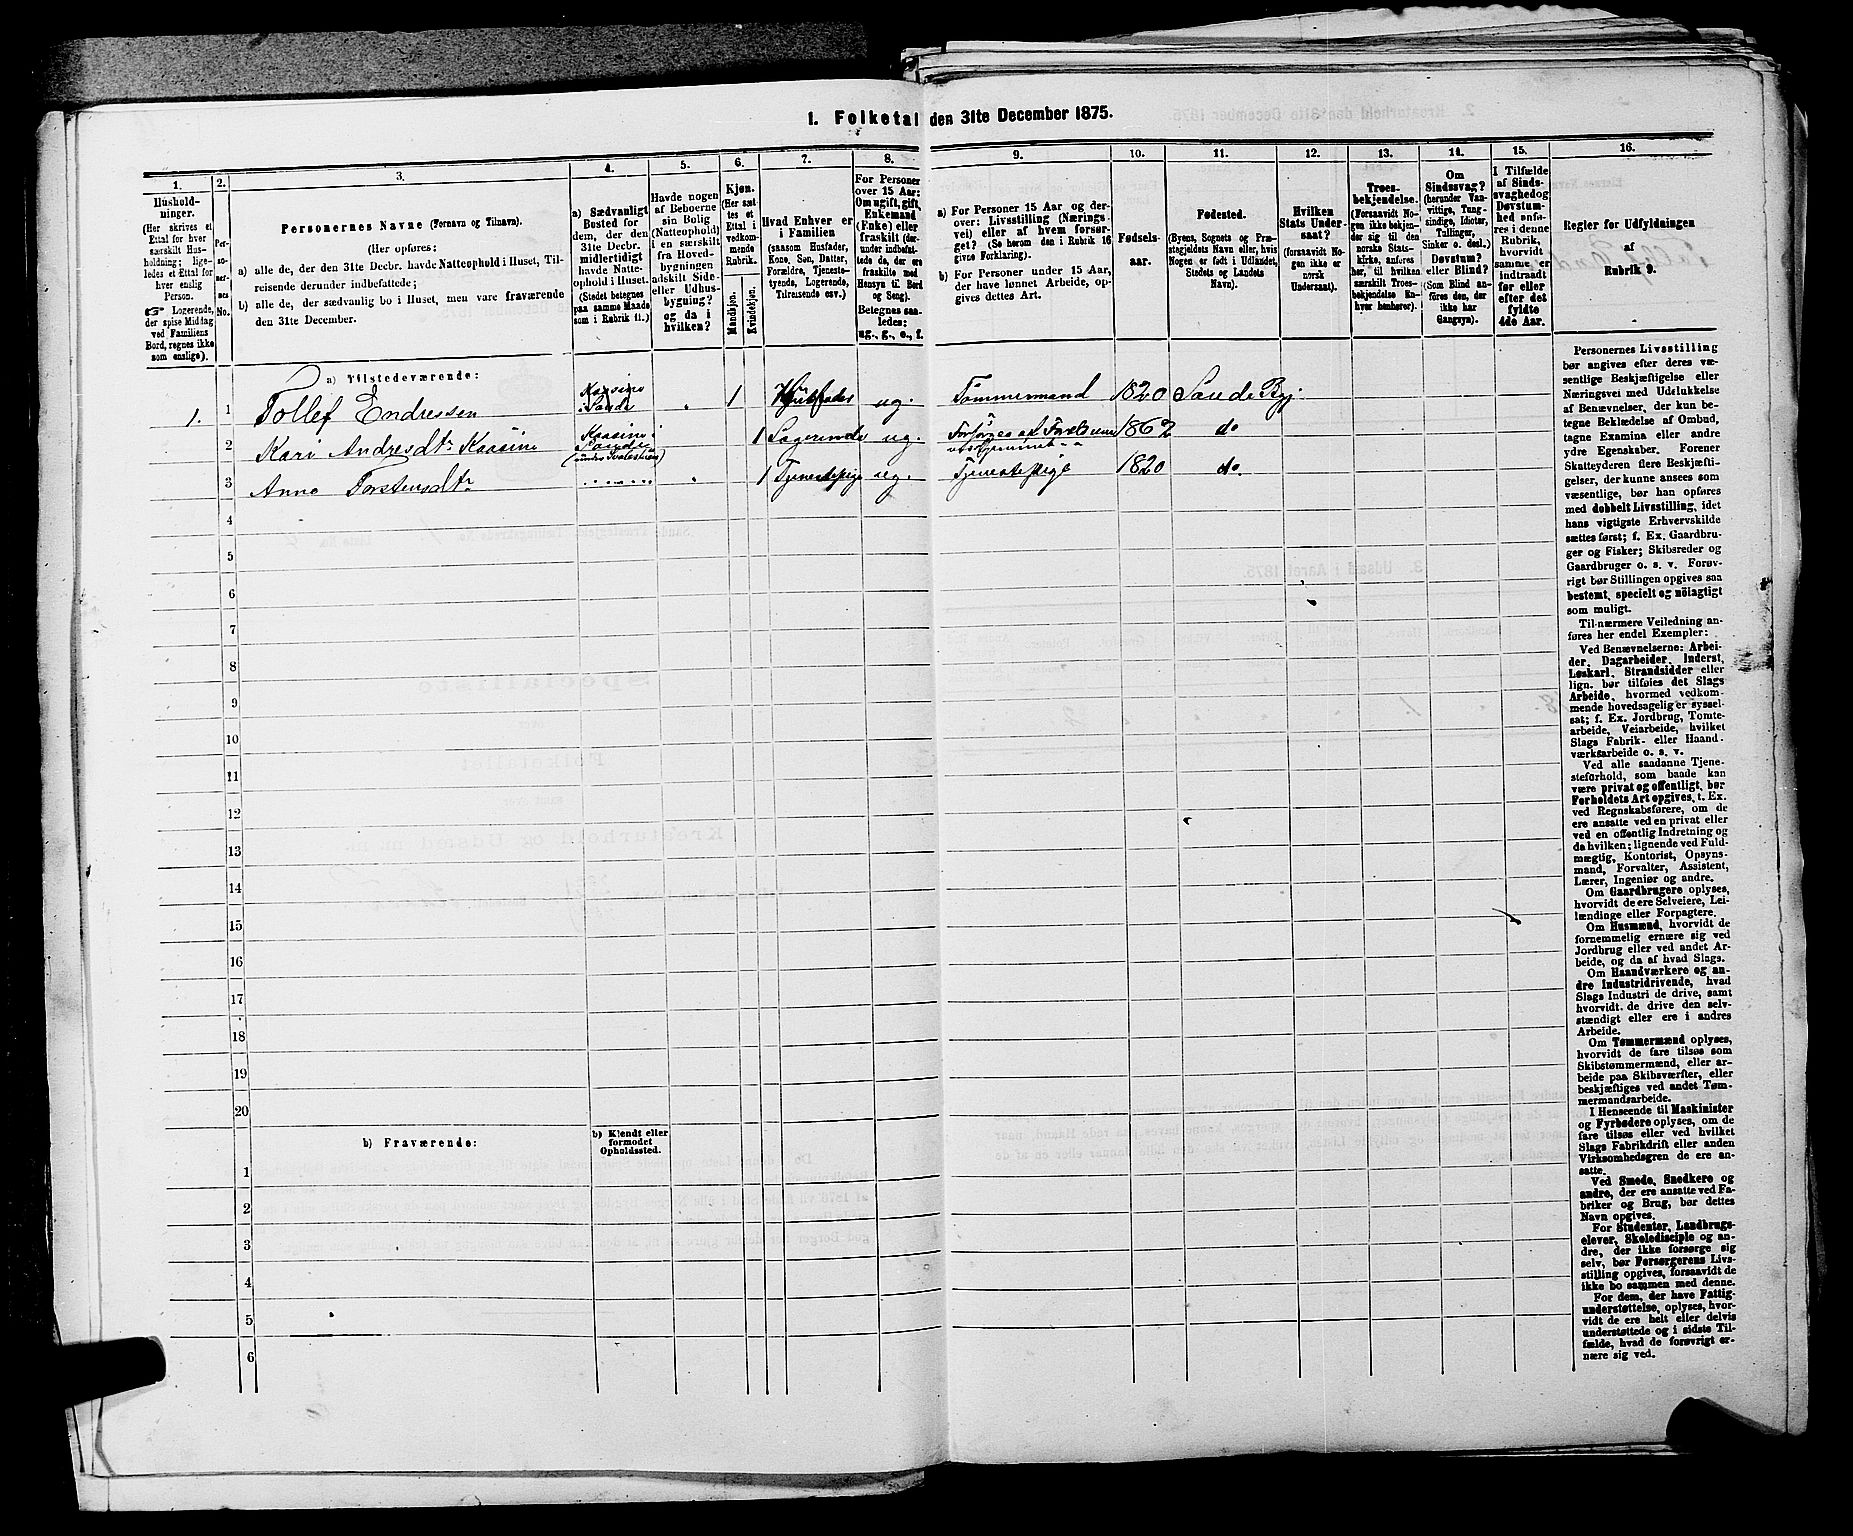 1. Folketal den 31te December 1875.
1.
Husholdninger.
(Her skrives et
Ettal for hver
særskilt Husholdning;
ligeledes et Ettal for
hver enslig
Person.
Logerende,
der spise Middag
ved Familiens
Bord, regnes ikke
som enslige).
2.
Personernes
No.
3.
Personernes Navne (Fornavn og Tilnavn).
(Her opføres:
a) alle de, der den 31te Decbr. havde Natteophold i Huset, Tilreisende
derunder indbefattede;
b) alle de, der sædvanlig bo i Huset, men vare fraværende
den 31te December.
4.
a) Sædvanligt
Bosted for
dem, der den
31te Decbr.
midlertidigt
havde Natteophold
i Huset.
(Stedet betegnes
paa samme Maade
som i Rubrik 11.)
5.
Havde nogen
af Beboerne
sin Bolig
(Natteophold)
i en særskilt
fra Hovedbygningen
adskilt Side-
eller Udhusbygning?
og da i
hvilken?
6.
Kjøn.
(Her sættes
et
Ettal i
vedkommende
Rubrik.
Mandkjøn.
Kvindekjøn.
7.
Hvad Enhver er
i Familien
(saasom Husfader,
Kone, Søn, Datter,
Forældre, Tjenestetyende,
Logerende,
Tilreisende osv.)
8.
For Personer
over 15 Aar:
Om ugift, gift,
Enkemand
(Enke) eller
fraskilt (derunder
indbefattede
de, der ere
fraskilte med
Hensyn til Bord
og Seng).
Betegnes saaledes:
ug., g., e., f.
9.
a) For Personer 15 Aar og derover:
Livsstilling (Næringsvei)
eller af hvem forsørget?
(Se herom den i Rubrik 16
givne Forklaring).
b) For Personer under 15 Aar,
der have lønnet Arbeide, opgives
dettes Art.
10.
Fødselsaar.
11.
Fødested.
(Byens, Sognets og Præstegjeldets
Navn eller, hvis
Nogen er født i Udlandet,
Stedets og Landets
Navn).
12.
Hvilken
Stats Undersaat?
(forsaavidt Nogen
ikke er
norsk
Undersaat).
13.
Troesbekjendelse.
(Forsaavidt Nogen
ikke bekjender
sig til den
norske Statskirke,
anføres
her, til hvilken
særskilt Troesbekjendelse
Enhver
henhører).
14.
Om
Sindssvag?
(herunder Vanvittige,
Tungsindige,
Idioter,
Tullinger,
Sinker o. desl.)
Døvstum?
eller Blind?
(Som Blind anføres
den, der
ikke har
Gangsyn).
15.
I Tilfælde
af Sindssvaghed
og
Døvstumhed
anføres
i denne
Rubrik,
hvorvidt
samme er
indtraadt
før eller
efter det
fyldte
4de Aar.
16.
Regler for Udfyldningen
af
Rubrik 9.
a) Tilstedeværende:
1. 1 Tollef Endressen Kaasine i Sande " 1 Husfader ug. Tømmermand 1820 Sande Bg.
2 Kari Andresdtr Kaasine Kaasine i Sande 1 ug. 1862 do
3 Anne Torstensdtr " 1 Tjenestepige ug. Tjenestepige 1820 do.
4
5
6
7
8
9
10
11
12
13
14
15
16
17
18
19
20
b) Fraværende:
b) Kjendt eller
formodet
Opholdssted.
1
2
3
4
5
6
Personernes Livsstilling
bør angives efter deres væsentlige
Beskjæftigelse eller
Næringsvei med Udelukkelse
af Benævnelser, der kun betegne
Beklædelse af Ombud,
tagne Examina eller andre
ydre Egenskaber. Forener
Skatteyderen flere Beskjæftigelser,
der kunne ansees som
væsentlige, bør han opføres
med dobbelt Livsstilling, idet
hans vigtigste Erhvervskilde
sættes først; f. Ex. Gaardbruger
og Fisker; Skibsreder og
Gaardbruger o. s. v. Forøvrigt
bør Stillingen opgives saa
bestemt, specielt og nöiagtigt
som muligt.
Til nærmere Veiledning anføres
her endel Exempler:
Ved Benævnelserne: Arbeider,
Dagarbeider, Inderst,
Løskarl, Strandsidder eller
lign. bør tilføies det Slags
Arbeide, hvormed vedkommende
hovedsagelig er sysselsat;
f. Ex. Jordbrug, Tomtearbeide,
Veiarbeide, hvilket
Slags Fabrik- eller Haandværksarbeide
o. s. v.
Ved alle saadanne Tjenesteforhold,
som baade kan
være privat og offentligt, bør
Forholdets Art opgives, t. Ex.
ved Regnskabsførere, om de
ere ansatte ved en privat eller
ved en offentlig Indretning og
da hvilken; lignende ved Fuldmægtig,
Kontorist, Opsynsmand,
Forvalter, Assistent,
Lærer, Ingeniør og andre.
Om Gaardbrugere oplyses,
hvorvidt de ere Selveiere, Leilændinge
eller Forpagtere.
Om Husmænd, hvorvidt de
fornemmelig ernære sig ved
Jordbrug eller ved andet Arbeide,
og da af hvad Slags.
Om Haandværkere og andre
Industridrivende, hvad
Slags Industri de drive, samt
hvorvidt de drive den selvstændigt
eller ere i andres
Arbeide.
Om Tømmermænd oplyses,
hvorvidt de fare tilsøs som
Skibstømmermænd, eller arbeide
paa Skibsværfter, eller
beskjæftiges ved andet Tømmermandsarbeide.
I Henseende til Maskinister
og Fyrbødere oplyses, om de
fare tilsøs eller ved hvilket
Slags Fabrikdrift eller anden
Virksomhedsgren de ere ansatte.
Ved Smede, Snedkere og
andre, der ere ansatte ved Fabriker
og Brug, bør dettes
Navn opgives.
For Studenter, Landbrugselever,
Skoledisciple og andre,
der ikke forsørge sig
selv, bør Forsørgerens Livsstilling
opgives, forsaavidt de
ikke bo sammen med denne.
For dem, der have Fattigunderstøttelse,
oplyses, hvorvidt
de ere helt eller delvis
understøttede og i sidste Tilfælde,
hvad de forøvrigt ernære
sig ved.